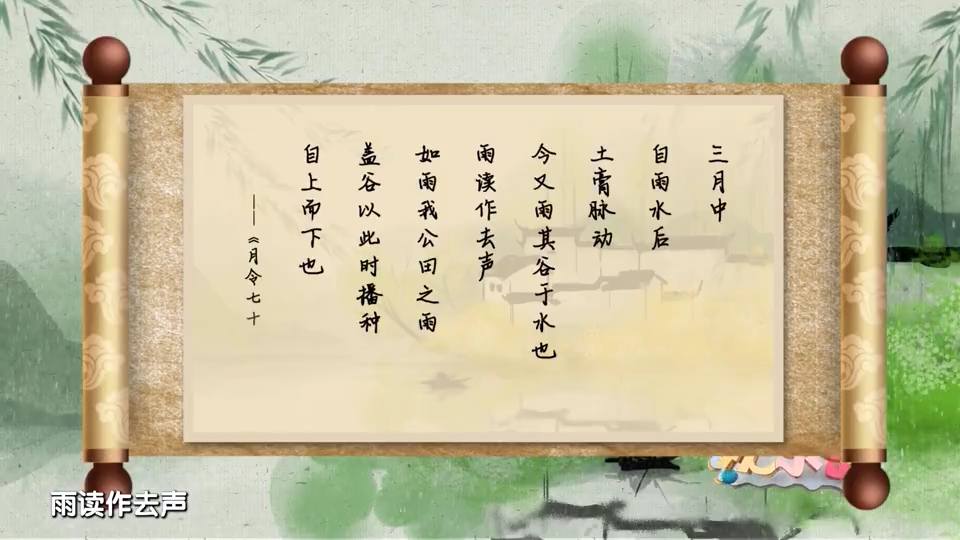 三月中
自雨水后
土膏脉动
今又雨其谷于水也
雨读作去声
如雨我公田之雨
盖谷以此时播种
自上而下也
——《月令七十
雨读作去声